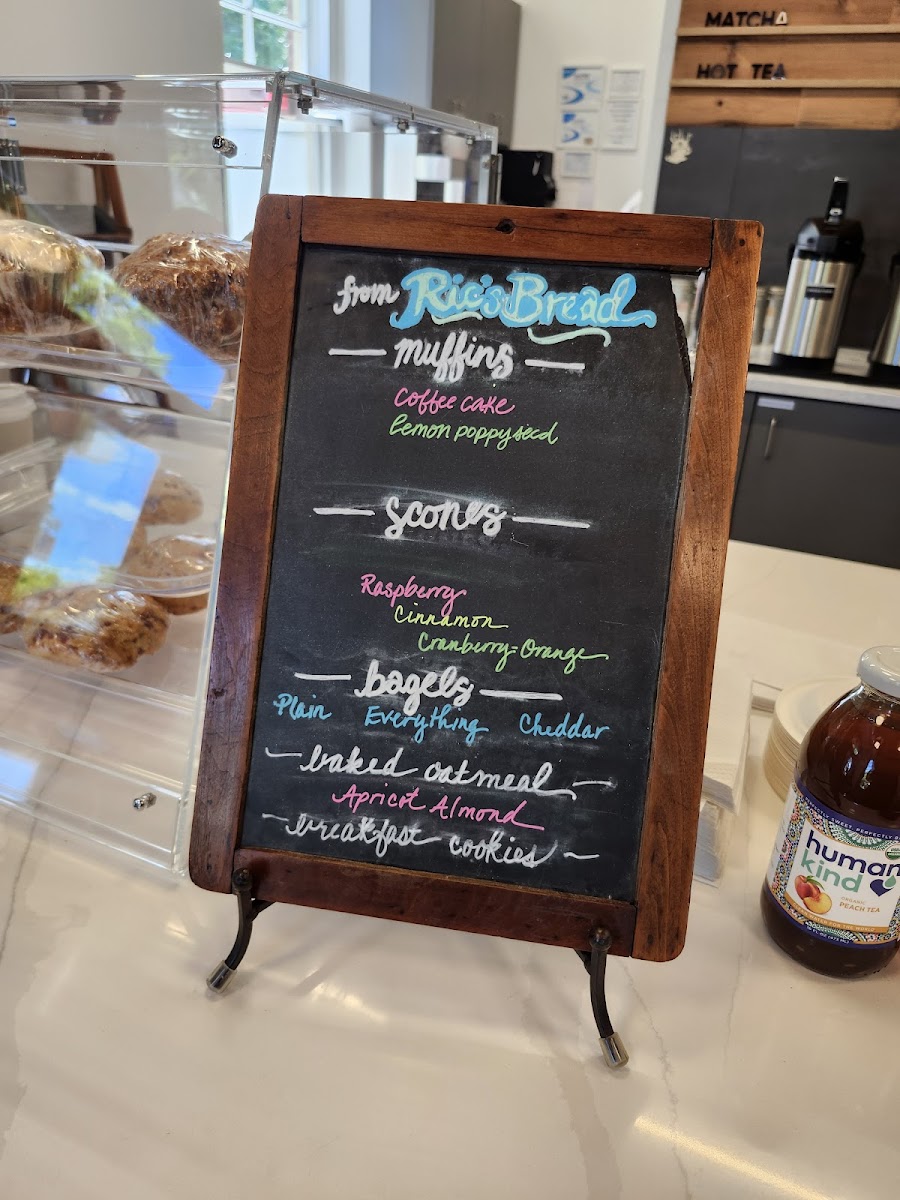 MATCHA
HOT TEA
from Ric's Bread
muffins
Coffee cake
lemon poppyseed
scones
Raspberry
Cinnamon
Cranberry-Orange
bagels
Plain Everything Cheddar
baked oatmeal
Apricot Almond
breakfast cookies
human
kind
ORGANIC
PEACH TEA